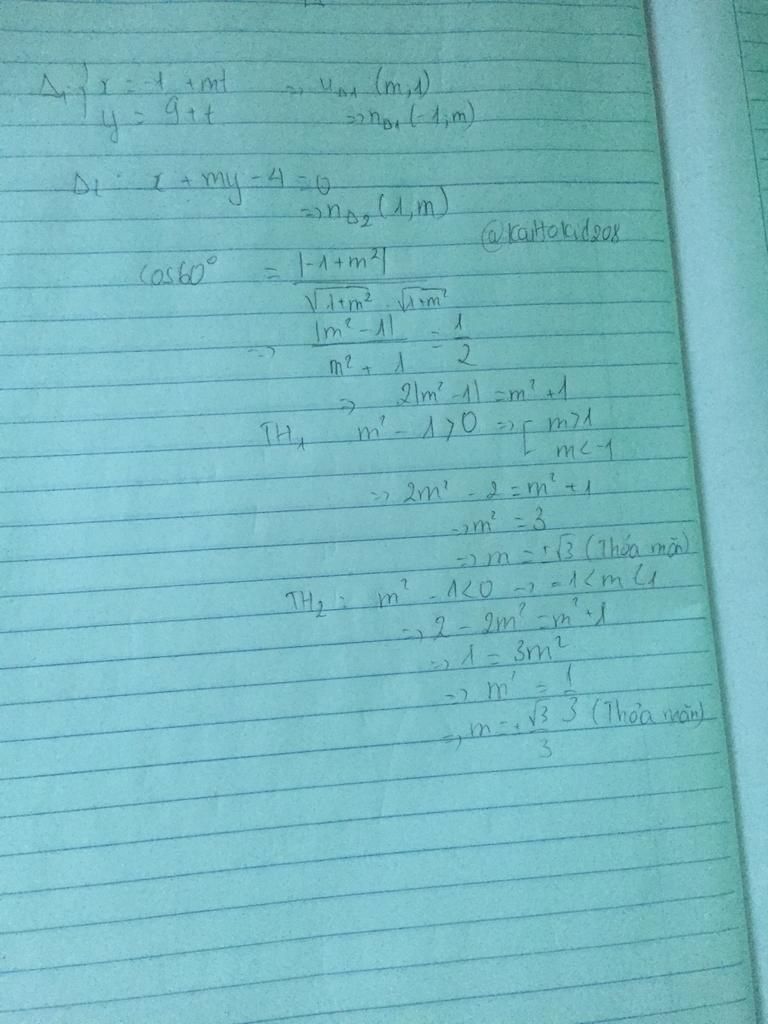 Δ₁: { x = -1 + mt => u_Δ1 (m,1)
y = 9 + t => n_Δ1 (-1;m)
Δ₂: x + my - 4 = 0
=> n_Δ2 (1,m)
@kaitokid208
cos60° = |-1+m²|
√1+m² . √1+m²
=> |m² - 1| / m² + 1 = 1/2
=> 2|m² - 1| = m² + 1
TH1 m² - 1 > 0 => [ m > 1
m < -1
=> 2m² - 2 = m² + 1
=> m² = 3
=> m = ±√3 (Thỏa mãn)
TH2: m² - 1 < 0 -> -1 < m < 1
=> 2 - 2m² = m² + 1
=> 1 = 3m²
=> m² = 1/3
=> m = ±√3/3 (Thỏa mãn)